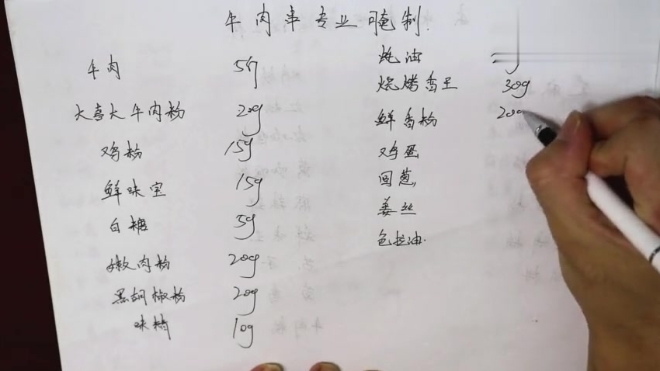 牛肉串专业腌制
牛肉 5斤
大喜大牛肉粉 20g
鸡粉 15g
鲜味宝 15g
白糖 5g
嫩肉粉 20g
黑胡椒粉 20g
味精 10g
蚝油
烧烤香王 30g
鲜香粉 20
鸡蛋
圆葱
姜丝
色拉油